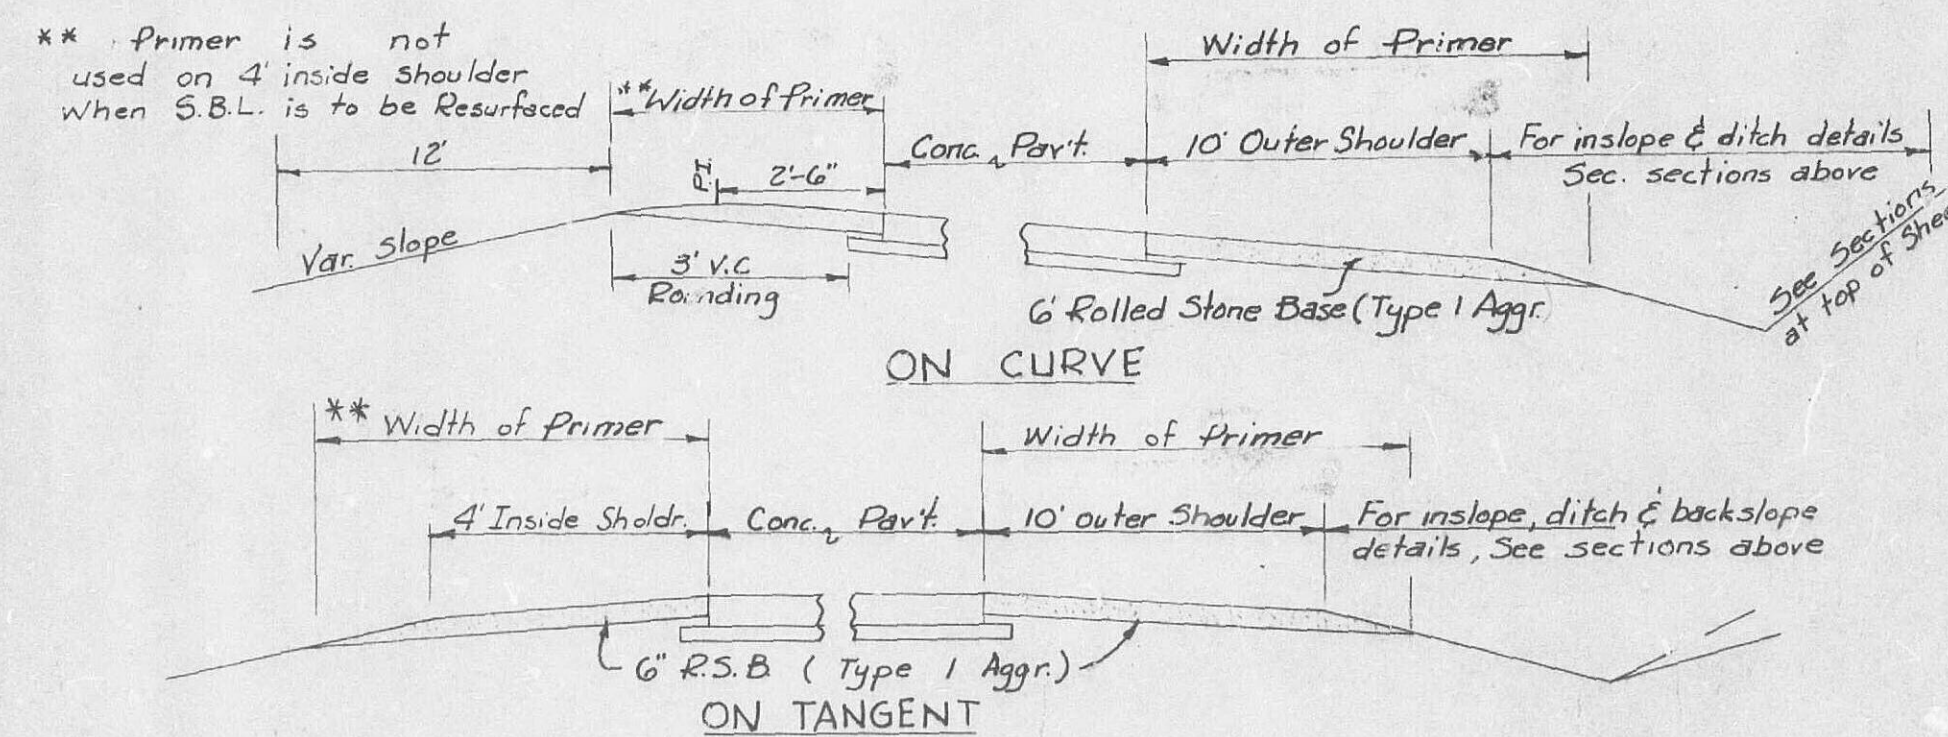 ** Primer is not
used on 4' inside shoulder
When S.B.L. is to be Resurfaced
Width of Primer
**Width of Primer
12'
Conc. Pav't.
10' Outer Shoulder
For inslope & ditch details
Sec. sections above
P.I.
2'-6"
Var. Slope
3' V.C
Rounding
6' Rolled Stone Base (Type 1 Aggr.
See Sections
at top of
ON CURVE
** Width of Primer
Width of Primer
4' Inside Sholdr.
Conc. Pav't.
10' outer Shoulder
For inslope, ditch & backslope
details, See sections above
6" R.S.B. ( Type 1 Aggr.)
ON TANGENT